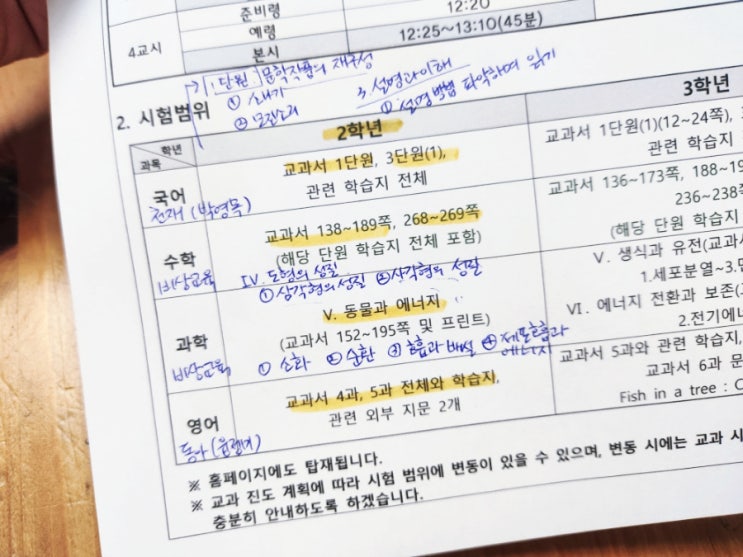 준비령 12:20
4교시 예령
본시 12:25~13:10(45분)
1. 단원 문학작품의 재구성
① 소나기
3. 설명과 이해
① 설명 방법 파악하며 읽기
2. 시험범위
학년 과목 2학년 3학년
국어 교과서 1단원, 3단원(1), 관련 학습지 전체
천재 (박영목)
교과서 1단원(1)(12~24쪽),
관련 학습지
수학 교과서 138~189쪽, 268~269쪽
(해당 단원 학습지 전체 포함)
비상교육 IV. 도형의 성질
① 삼각형의 성질 ② 사각형의 성질
교과서 136~173쪽, 188~19
236~238쪽
(해당 단원 학습지
과학 V. 동물과 에너지
(교과서 152~195쪽 및 프린트)
비상교육 ① 소화 ② 순환 ③ 호흡과 배설 ④ 세포호흡과 에너지
V. 생식과 유전(교과서
1.세포분열~3.
VI. 에너지 전환과 보존(
2.전기에너
영어 교과서 4과, 5과 전체와 학습지,
관련 외부 지문 2개
동아 (윤정미)
교과서 5과와 관련 학습지,
교과서 6과 문
Fish in a tree : C
※ 홈페이지에도 탑재됩니다.
※ 교과 진도 계획에 따라 시험 범위에 변동이 있을 수 있으며, 변동 시에는 교과 시
충분히 안내하도록 하겠습니다.